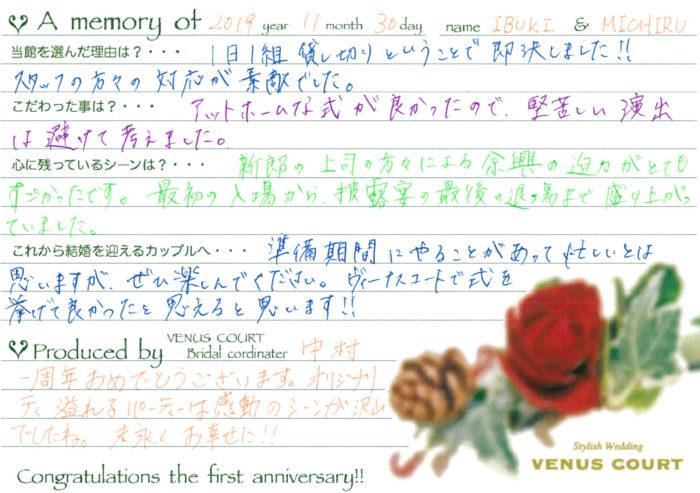 A memory of 2019 year 11 month 30 day name IBUKI & MICHIRU
当館を選んだ理由は?・・・ 1日1組 貸し切りということで 即決しました!!
スタッフの方々の 対応が 素敵でした。
こだわった事は?・・・ アットホームな式が良かったので、堅苦しい演出
は避けて考えました。
心に残っているシーンは?・・・ 新郎の上司の方々による余興の迫力がとても
すごかったです。最初の入場から、披露宴の最後の退場まで盛り上がっ
ていました。
これから結婚を迎えるカップルへ・・・ 準備期間にやることがあって忙しいとは
思いますが、ぜひ楽しんでください。ヴィーナスコートで式を
挙げて良かったと思えると思います!!
Produced by VENUS COURT Bridal cordinater 中村
一周年おめでとうございます。オリジナリ
ティ溢れるパーティーは感動のシーンが沢山
でしたね。末永くお幸せに!!
Congratulations the first anniversary!!
Stylish Wedding
VENUS COURT